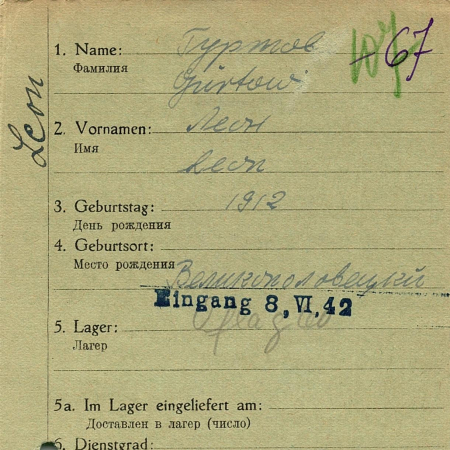 1. Name: Гуртов
Фамилия Gurtow
67
Leon
2. Vornamen: Леон
Имя
Leon
3. Geburtstag: 1912
День рождения
4. Geburtsort:
Место рождения Великополовецкий
Eingang 8, VI, 42
5. Lager: Oflag 60
Лагер
5a. Im Lager eingeliefert am:
Доставлен в лагер (число)
6. Dienstgrad: